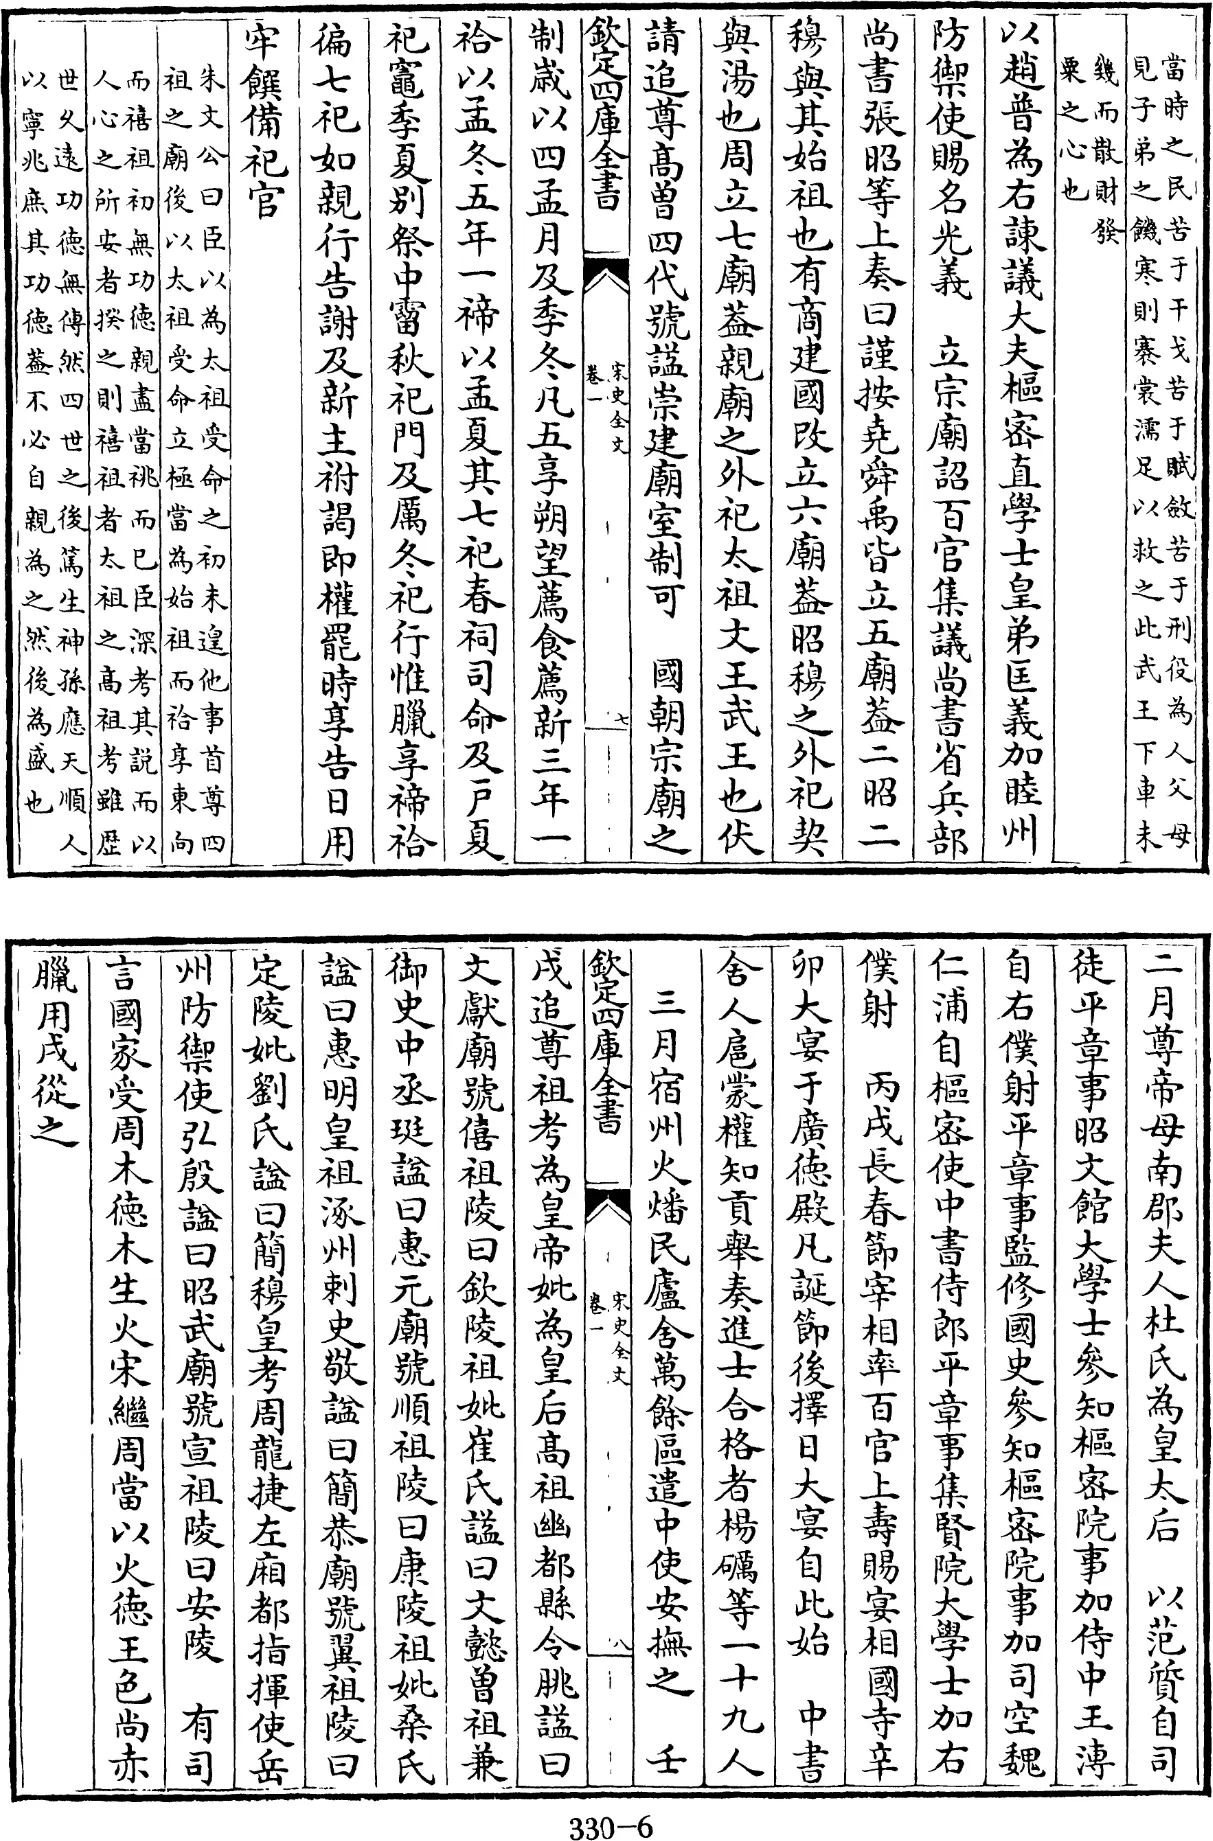 當時之民苦于干戈苦于賦斂苦于刑役為人父母
見子弟之饑寒則褰裳濡足以救之此武王下車未
幾而散財發
粟之心也
以趙普為右諫議大夫樞密直學士皇弟匡義加睦州
防禦使賜名光義　立宗廟詔百官集議尚書省兵部
尚書張昭等上奏曰謹按堯舜禹皆立五廟葢二昭二
穆與其始祖也有商建國改立六廟葢昭穆之外祀契
與湯也周立七廟葢親廟之外祀太祖文王武王也伏
請追尊高曾四代號諡崇建廟室制可　國朝宗廟之
欽定四庫全書
宋史全文
卷一
七
制嵗以四孟月及季冬凡五享朔望薦食薦新三年一
祫以孟冬五年一禘以孟夏其七祀春祠司命及戸夏
祀竈季夏别祭中霤秋祀門及厲冬祀行惟臘享禘祫
徧七祀如親行告謝及新主祔謁即權罷時享告日用
牢饌備祀官
朱文公曰臣以為太祖受命之初未遑他事首尊四
祖之廟後以太祖受命立極當為始祖而祫享東向
而禧祖初無功德親盡當祧而已臣深考其説而以
人心之所安者揆之則禧祖者太祖之高祖考雖歴
世久逺功德無傳然四世之後篤生神孫應天順人
以寧兆庶其功德葢不必自親為之然後為盛也
二月尊帝母南郡夫人杜氏為皇太后　以范質自司
徒平章事昭文館大學士參知樞密院事加侍中王溥
自右僕射平章事監修國史參知樞密院事加司空魏
仁浦自樞密使中書侍郎平章事集賢院大學士加右
僕射　丙戌長春節宰相率百官上壽賜宴相國寺辛
卯大宴于廣德殿凡誕節後擇日大宴自此始　中書
舍人扈蒙權知貢舉奏進士合格者楊礪等一十九人
三月宿州火燔民廬舍萬餘區遣中使安撫之　壬
欽定四庫全書
宋史全文
卷一
八
戌追尊祖考為皇帝妣為皇后高祖幽都縣令朓諡曰
文獻廟號僖祖陵曰欽陵祖妣崔氏諡曰文懿曽祖兼
御史中丞珽諡曰惠元廟號順祖陵曰康陵祖妣桑氏
諡曰惠明皇祖涿州刺史敬諡曰簡恭廟號翼祖陵曰
定陵妣劉氏諡曰簡穆皇考周龍捷左廂都指揮使岳
州防禦使弘殷諡曰昭武廟號宣祖陵曰安陵　有司
言國家受周木德木生火宋繼周當以火德王色尚赤
臘用戌從之
330-6